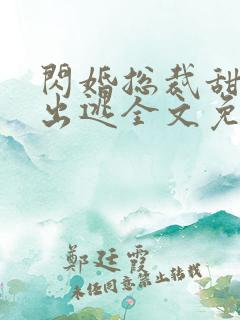 閃婚总裁甜
出逃全文免
鄭廷霞
未经同意禁止转载